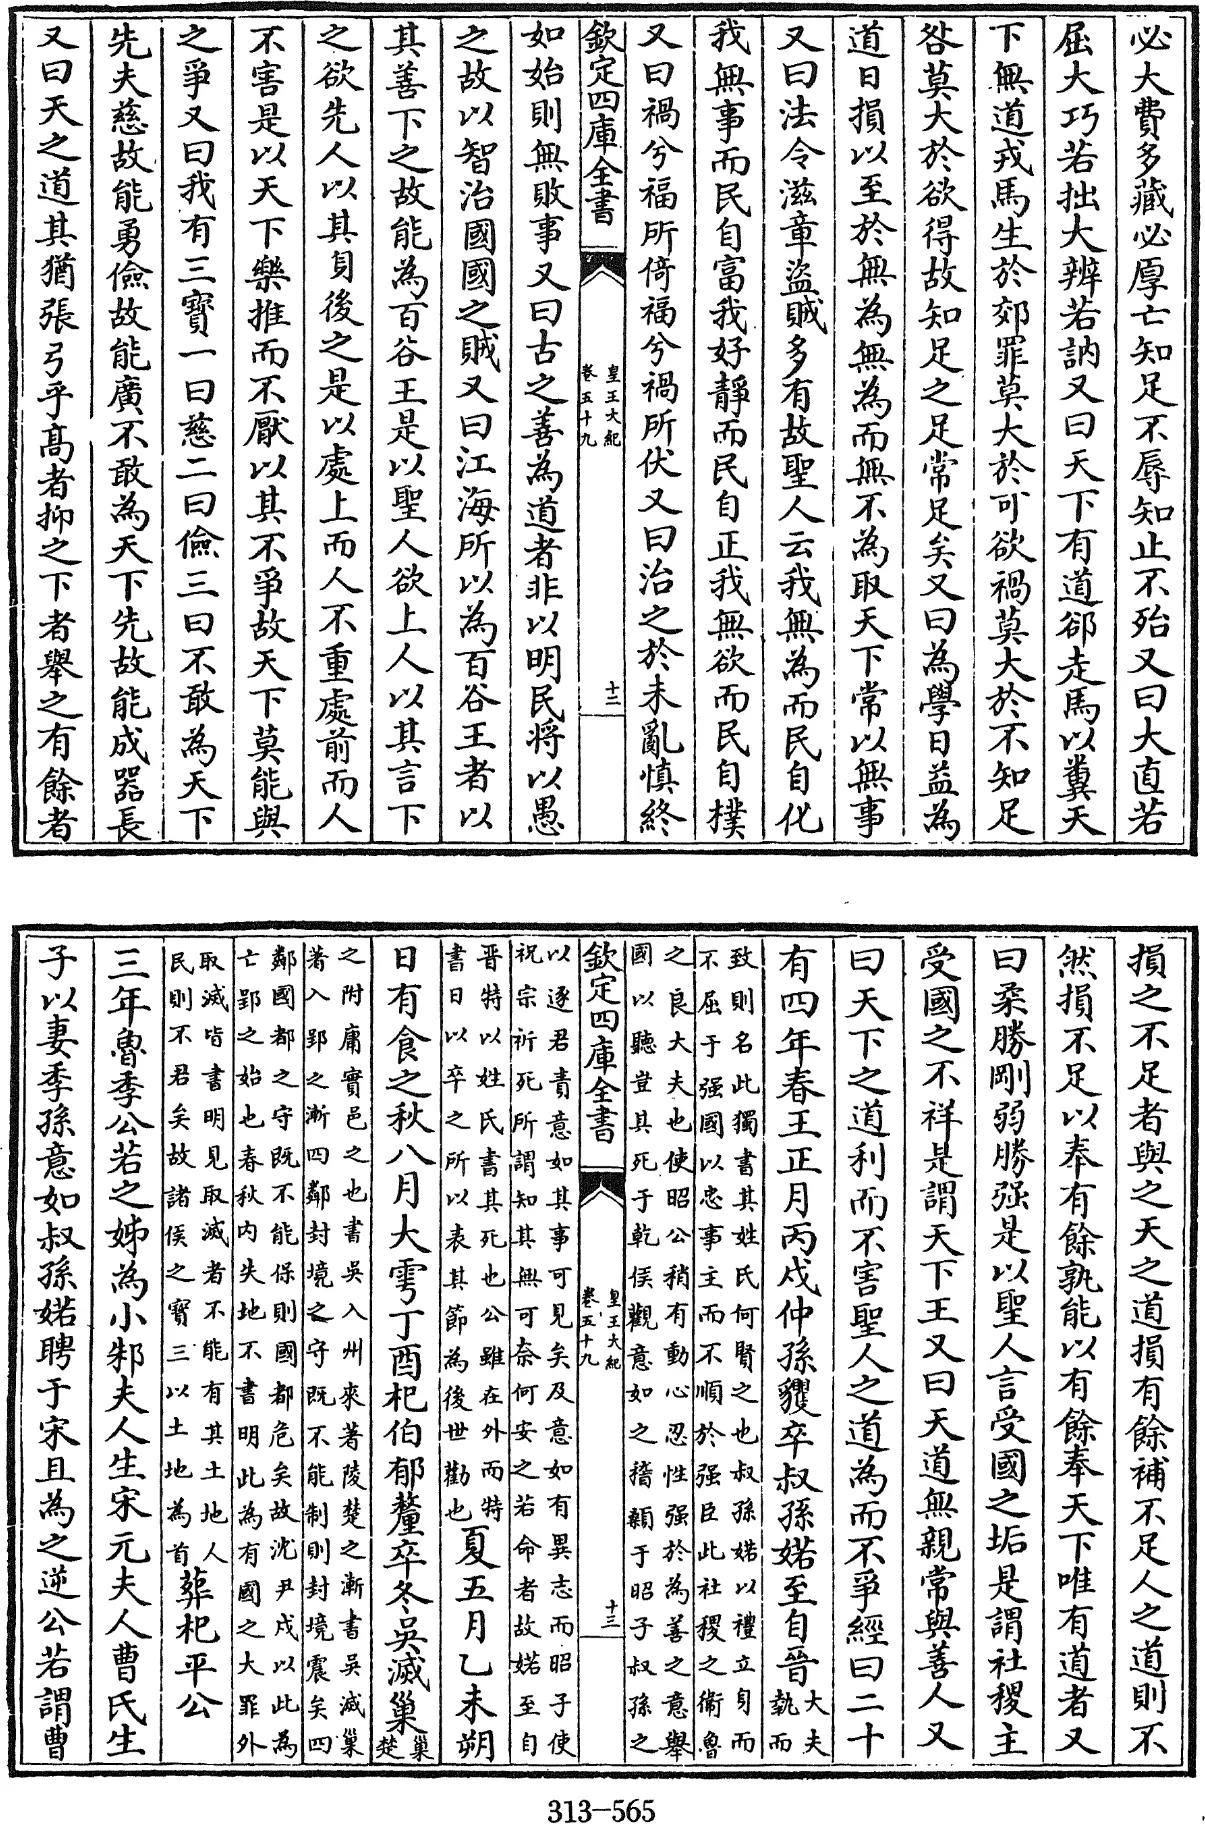 必大費多藏必厚亡知足不辱知止不殆又曰大直若
屈大巧若拙大辨若訥又曰天下有道郤走馬以糞天
下無道戎馬生於郊罪莫大於可欲禍莫大於不知足
咎莫大於欲得故知足之足常足矣又曰為學日益為
道日損以至於無為無為而無不為取天下常以無事
又曰法令滋章盜賊多有故聖人云我無為而民自化
我無事而民自富我好靜而民自正我無欲而民自樸
又曰禍兮福所倚福兮禍所伏又曰治之於未亂慎終
欽定四庫全書
皇王大紀
卷五十九
十二
如始則無敗事又曰古之善為道者非以明民將以愚
之故以智治國國之賊又曰江海所以為百谷王者以
其善下之故能為百谷王是以聖人欲上人以其言下
之欲先人以其身後之是以處上而人不重處前而人
不害是以天下樂推而不厭以其不爭故天下莫能與
之爭又曰我有三寶一曰慈二曰儉三曰不敢為天下
先夫慈故能勇儉故能廣不敢為天下先故能成器長
又曰天之道其猶張弓乎高者抑之下者舉之有餘者
損之不足者與之天之道損有餘補不足人之道則不
然損不足以奉有餘孰能以有餘奉天下唯有道者又
曰柔勝剛弱勝强是以聖人言受國之垢是謂社稷主
受國之不祥是謂天下王又曰天道無親常與善人又
曰天下之道利而不害聖人之道為而不爭經曰二十
有四年春王正月丙戌仲孫貜卒叔孫婼至自晉
大夫
執而
致則名此獨書其姓氏何賢之也叔孫婼以禮立身而
不屈于强國以忠事主而不順於强臣此社稷之衛魯
之良大夫也使昭公稍有動心忍性强於為善之意舉
國以聽豈其死于乾侯觀意如之稽顙于昭子叔孫之
欽定四庫全書
皇王大紀
卷五十九
十三
以逐君責意如其事可見矣及意如有異志而昭子使
祝宗祈死所謂知其無可奈何安之若命者故婼至自
晉特以姓氏書其死也公雖在外而特
書日以卒之所以表其節為後世勸也
夏五月乙未朔
日有食之秋八月大雩丁酉杞伯郁釐卒冬吳滅巢
巢
楚
之附庸實邑之也書吳入州來著陵楚之漸書吳滅巢
著入郢之漸四鄰封境之守既不能制則封境震矣四
鄰國都之守既不能保則國都危矣故沈尹戌以此為
亡郢之始也春秋內失地不書明此為有國之大罪外
取滅皆書明見取滅者不能有其土地人
民則不君矣故諸侯之寶三以土地為首
葬杞平公
三年魯季公若之姊為小邾夫人生宋元夫人曹氏生
子以妻季孫意如叔孫婼聘于宋且為之逆公若謂曹
313—565